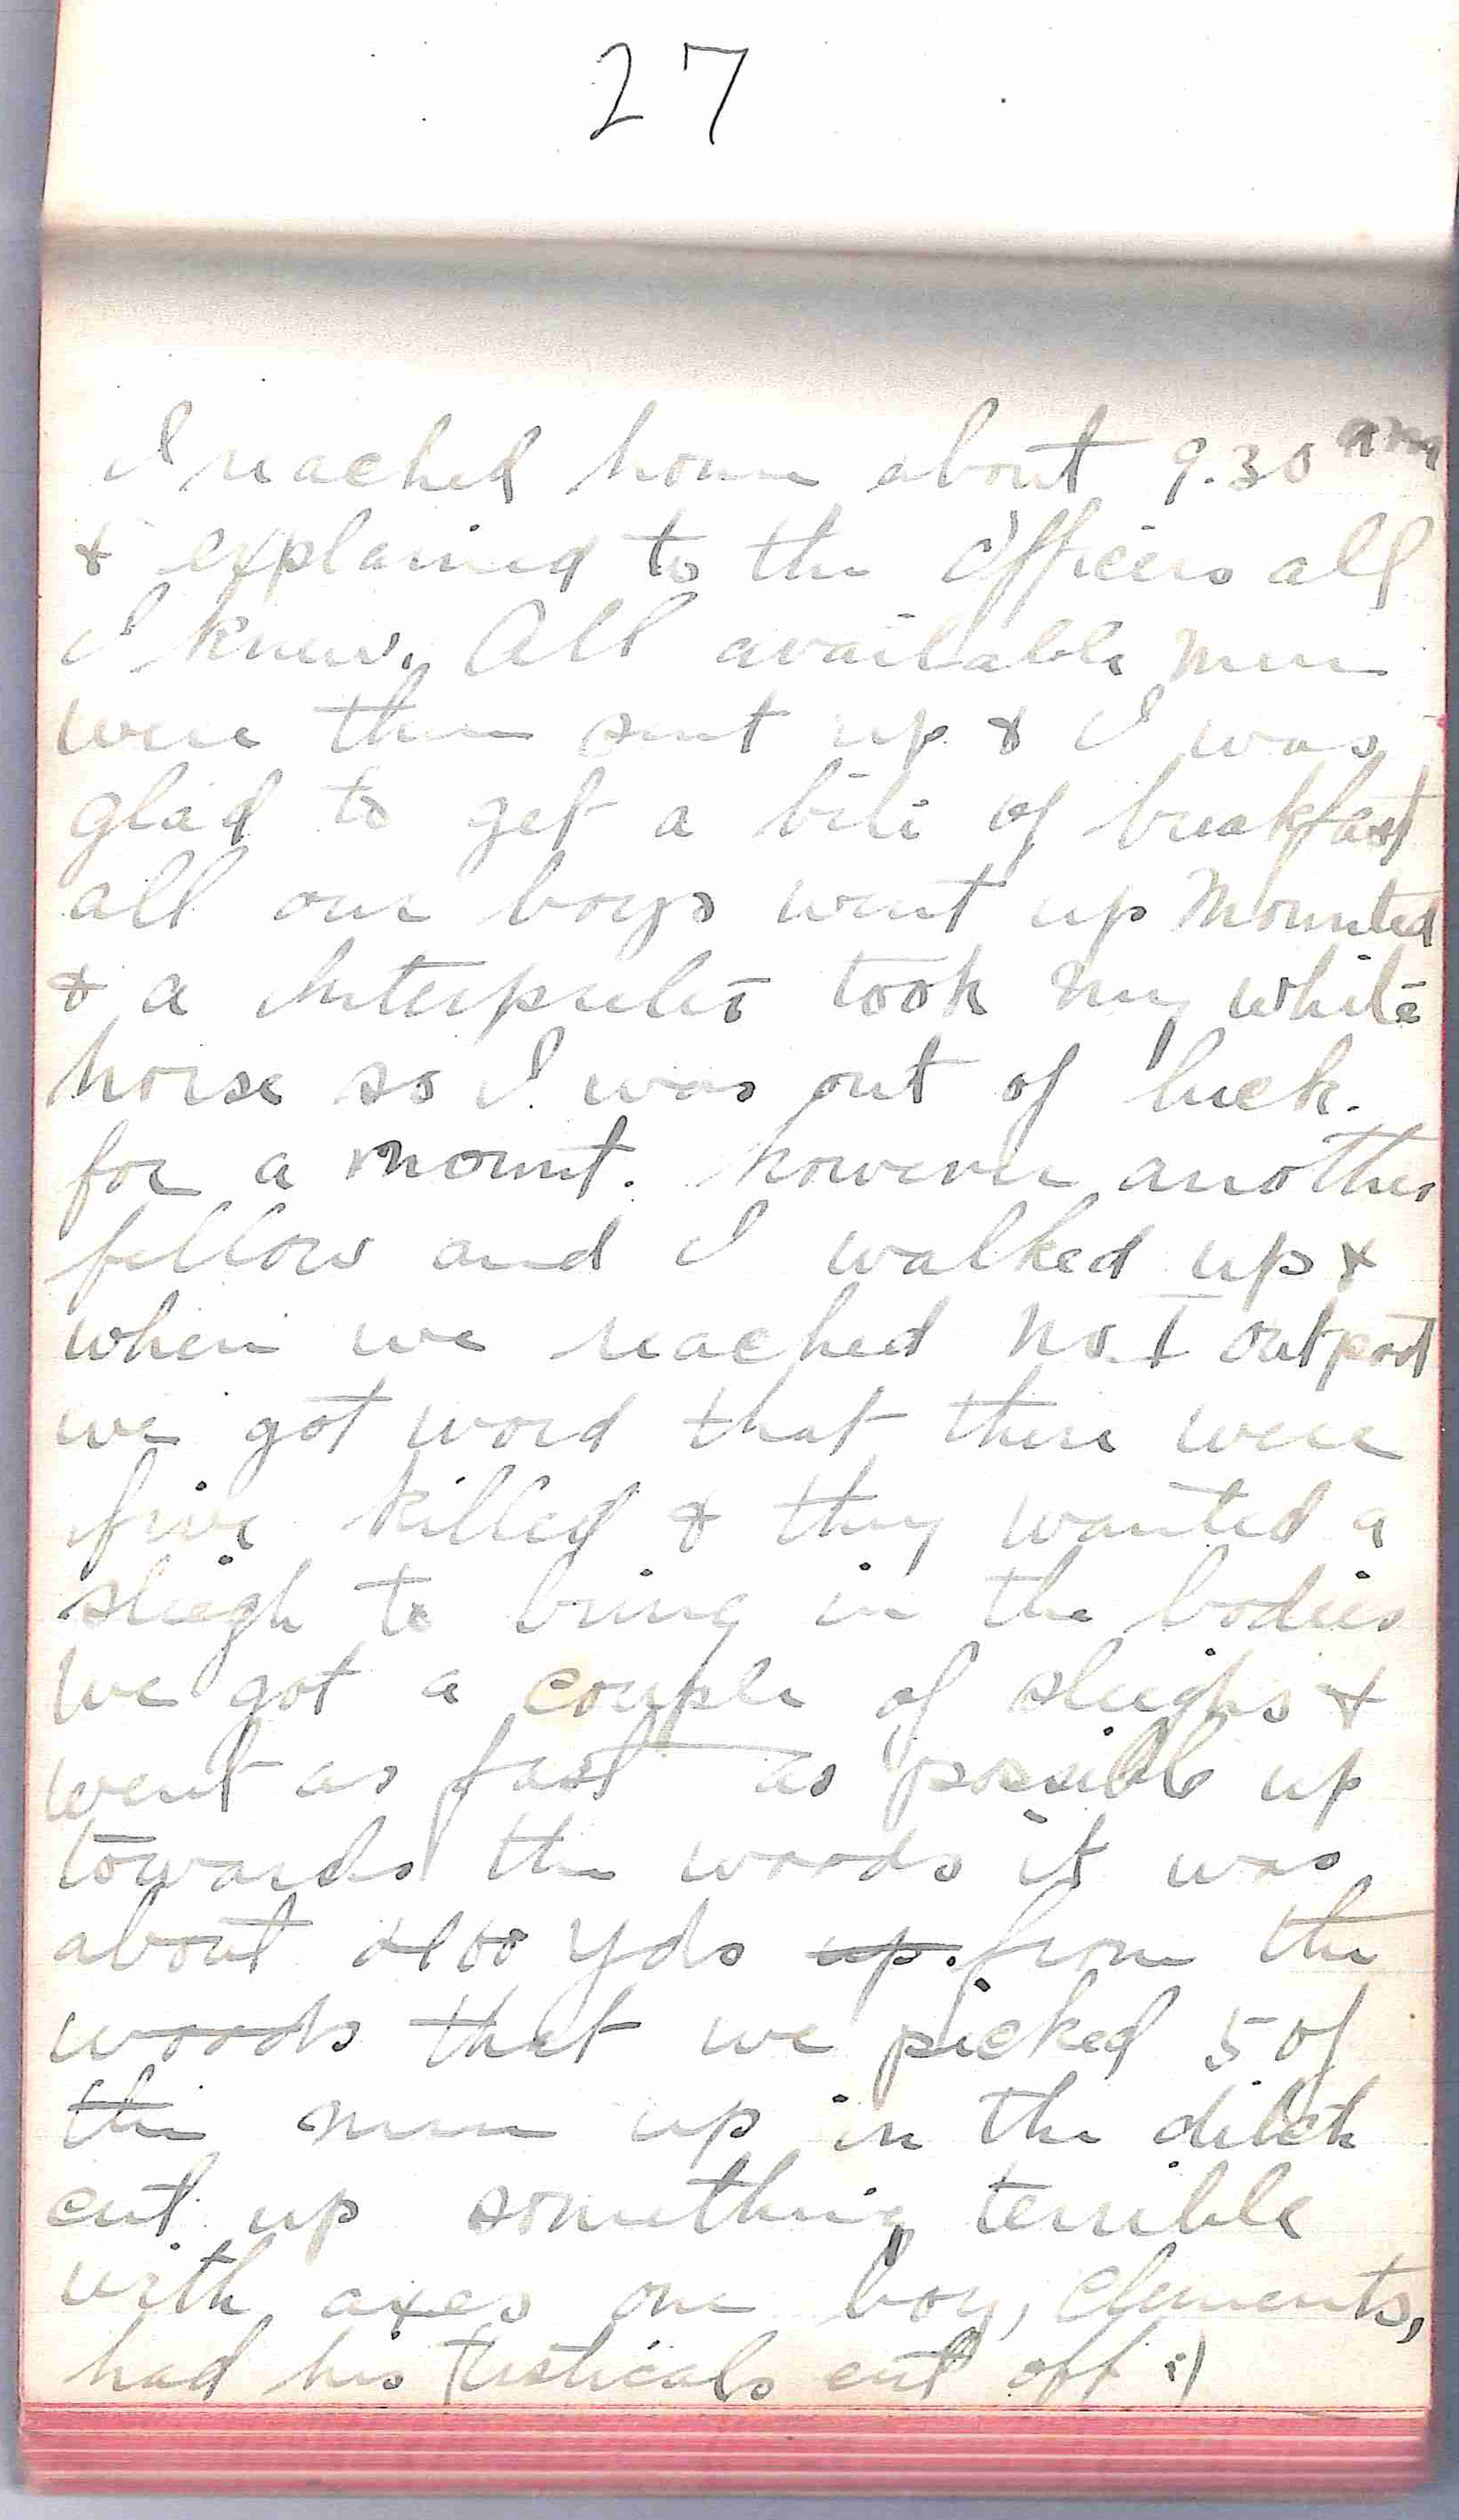 27
I reached home about 9.30 am
& explained to the Officers all
I knew. All available men
were then sent up & I was
glad to get a bite of breakfast
all our boys went up Mounted
& a Interpreter took my white
horse so I was out of luck.
for a mount. however another
fellow and I walked up &
when we reached No. 1 outpost
we got word that there were
five killed & they wanted a
sleigh to bring in the bodies
We got a couple of sleighs &
went as fast as possible up
towards the woods it was
about yds up. from the
woods that we picked 5 of
the men up in the ditch
cut up something terrible
with axes one boy, Clements,
had his (testicals cut off :)